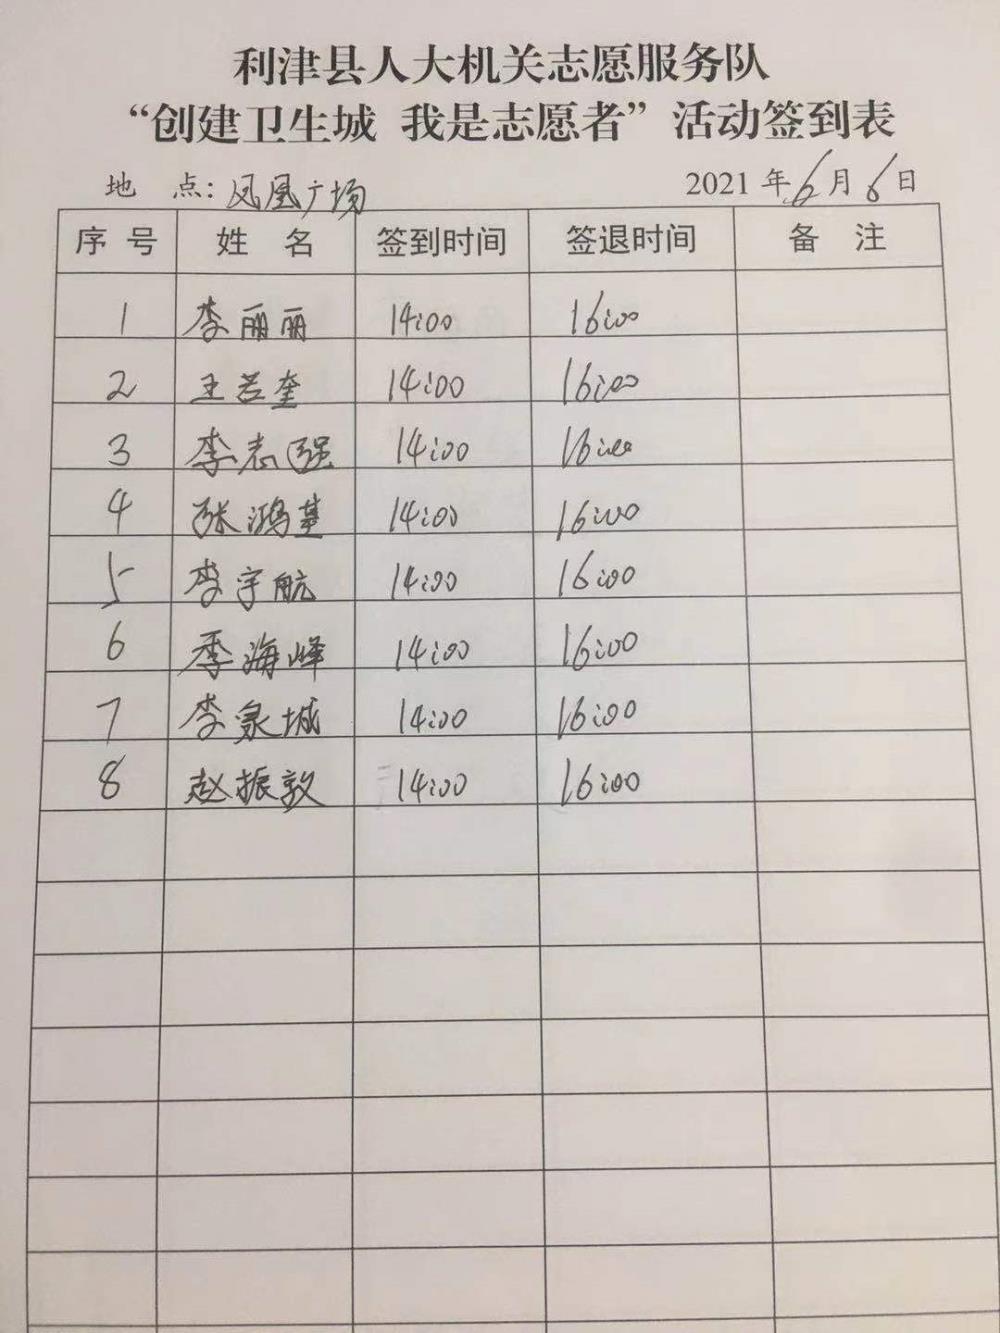 利津县人大机关志愿服务队
“创建卫生城 我是志愿者”活动签到表
地 点：凤凰广场 2021年6月6日
序号 姓名 签到时间 签退时间 备注
1 李丽丽 14:00 16:00
2 王芸奎 14:00 16:00
3 李志强 14:00 16:00
4 张鸿基 14:00 16:00
5 李宇航 14:00 16:00
6 季海峰 14:00 16:00
7 李泉城 14:00 16:00
8 赵振敦 14:00 16:00